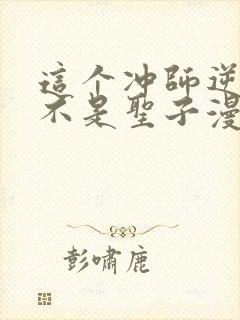 這个冲師逆
不是聖子漫
彭嘯鹿